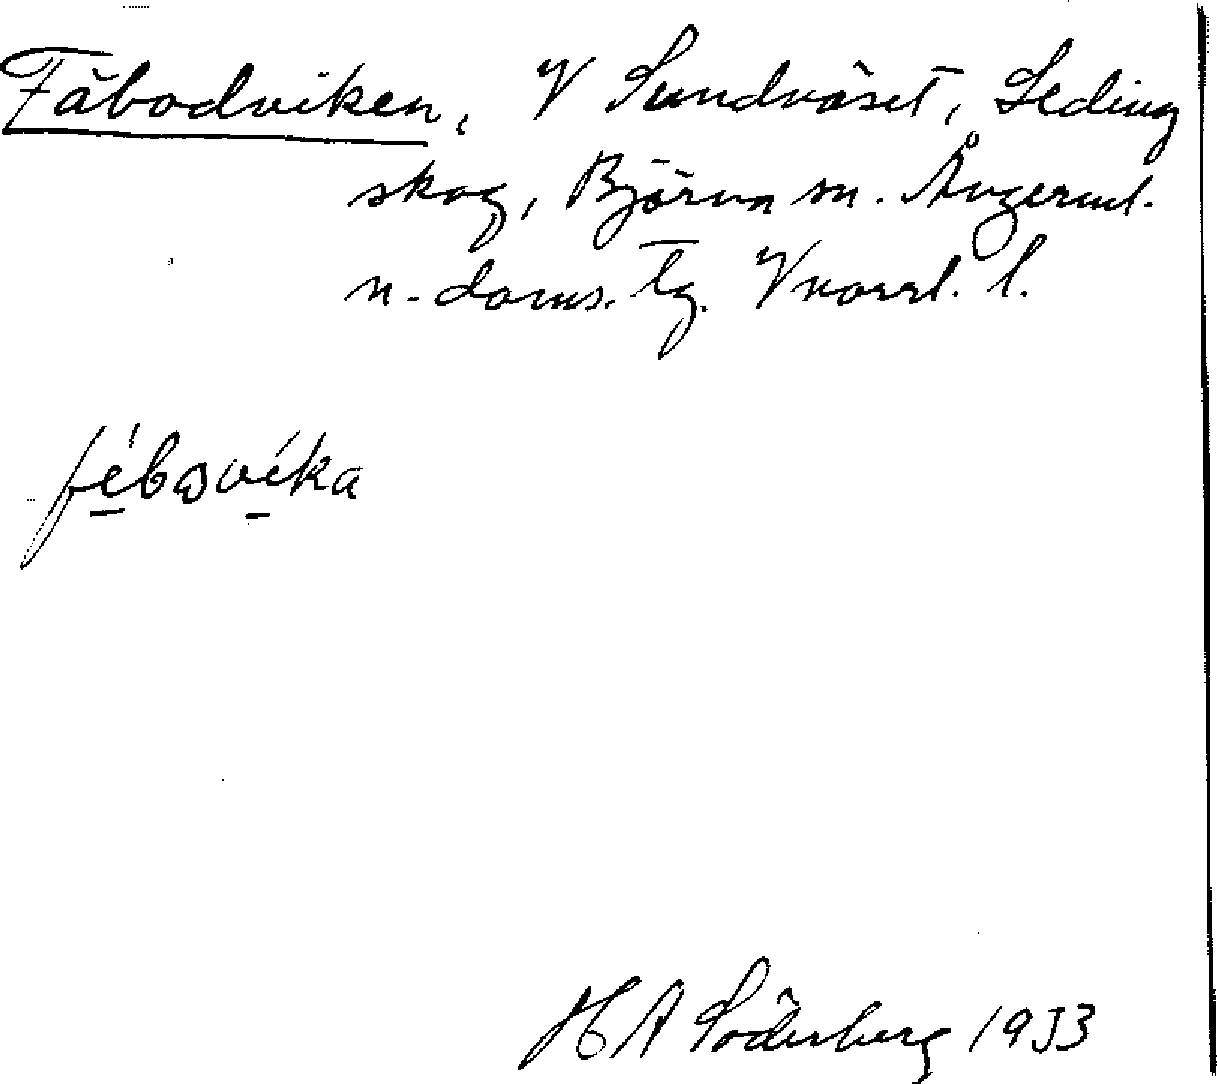 Fäbodviken, V Sundvåset, Leding
skog, Björna sn. Ångerml.
n. doms. tg. Vnorrl. l.
fébωvéka
H A Söderberg 1933